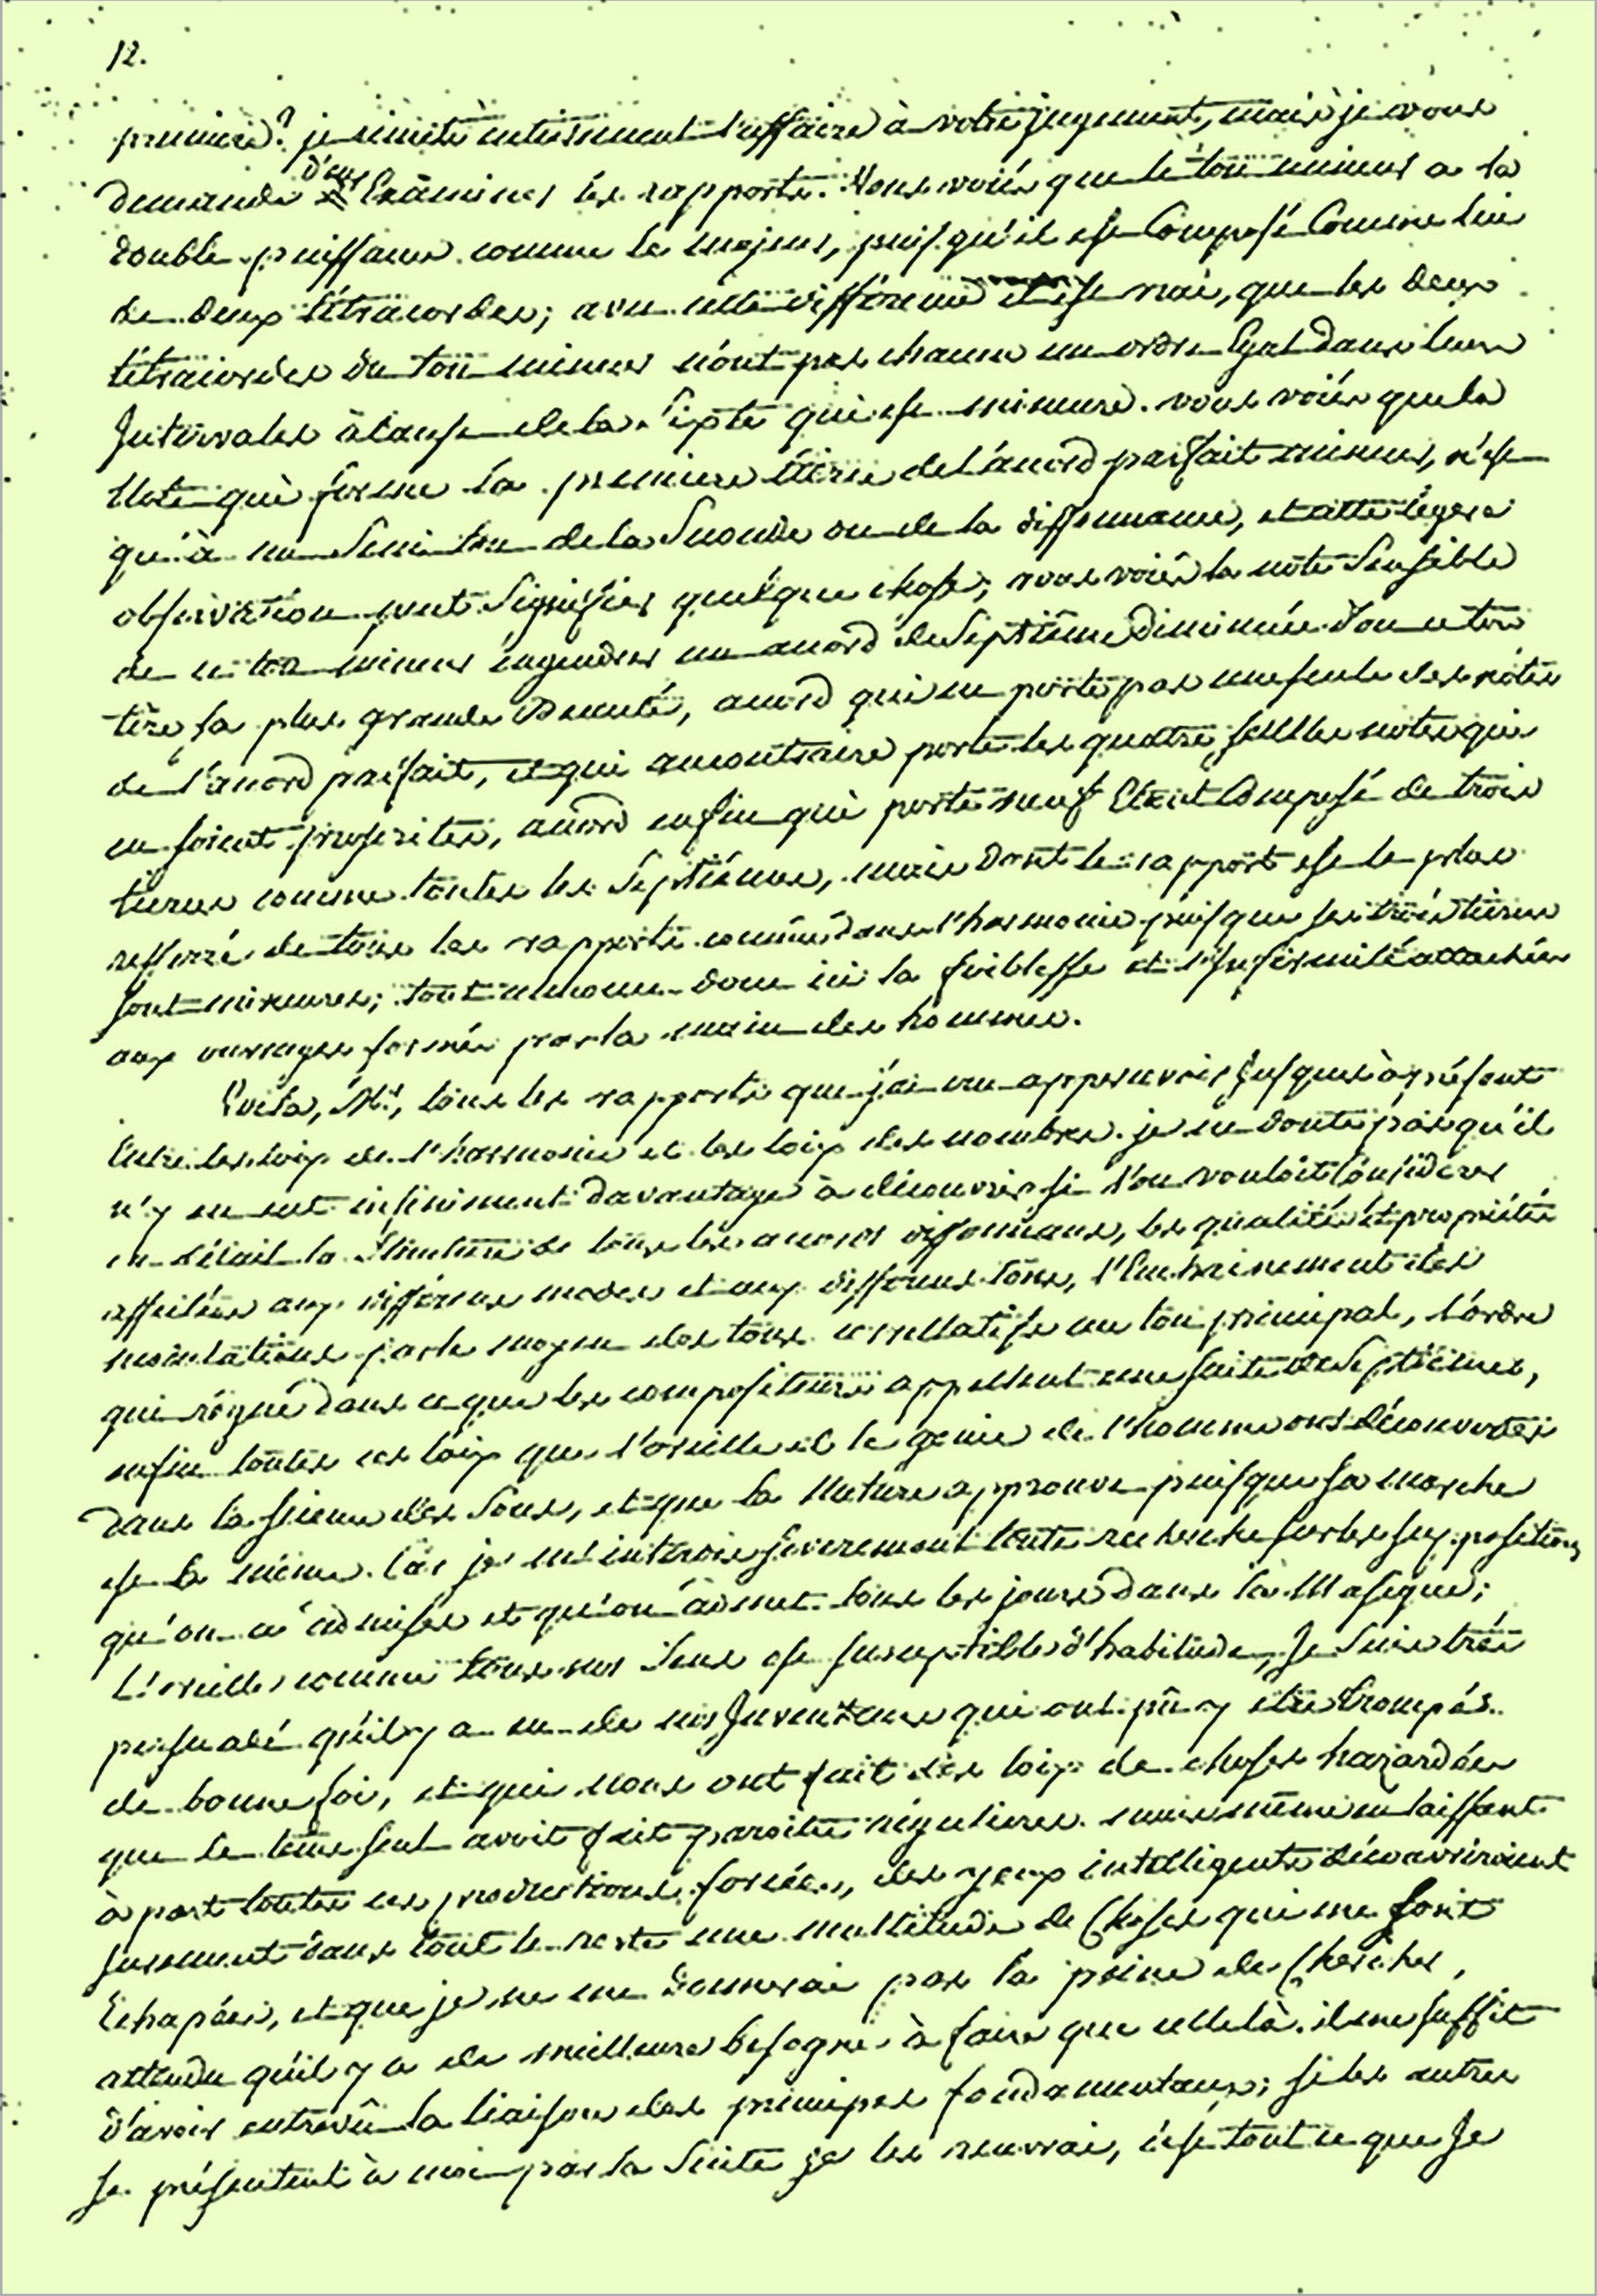 12.
premiere? je remets entierement l'affaire à votre jugement, mais je vous
demande d'en Examiner les rapports. Vous voiés que le ton mineur a la
double puissance comme le majeur, puisqu'il est Composé Comme lui
de deux tétracordes; avec cette différence il est vrai, que les deux
tétracordes du ton mineur n'ont pas chacun un ordre Egal dans leurs
Intervales à cause de la sixte qui est mineure. vous voiés que la
Note qui forme la premiere tierce de l'acord parfait mineur, n'est
qu'à un Semi ton de la Seconde ou de la dissonnance, et cette légere
observation peut Signifier quelque chose; vous voiés la note Sensible
de ce ton mineur engendrer un acord de Septième Diminuée d'ou ce ton
tire sa plus grande Beauté, acord qui ne porte pas une seule des notes
de l'acord parfait, et qui au contraire porte les quatre seules notes qui
en soient proscrites, acord enfin qui porte neuf Etant Composé de trois
tierces comme toutes les Septiémes, mais Dont le rapport est le plus
resserré de tous les rapports connus dans l'harmonie puisque ses trois tierces
sont mineures; tout annonce donc ici la foiblesse et l'Infirmité attachées
aux ouvrages formés par la main des hommes.
Voila, Mr, tous les rapports que j'ai cru appercevoir Jusques à présent
Entre les loix de l'harmonie et les loix des nombres. je ne doute pas qu'il
n'y en eut infiniment davantage à découvrir si l'on vouloit Considérer
en détail la Structure de tous les acords dissonnans, les qualités et propriétés
affectées aux différens modes et aux différens tons, l'Enchainement des
modulations par le moyen des tons corellatifs au ton principal, l'ordre
qui régne dans ce que les compositeurs appellent une suite de Septiémes,
enfin toutes ces loix que l'oreille et le genie de l'homme ont découvertes
dans la science des Sons, et que la Nature approuve puisque sa marche
est la même. Car je m'interdis severement toute recherche sur les suppositions
qu'on a admises et qu'on admet tous les jours dans la Musique;
L'oreille comme tous nos Sens est susceptible d'habitude, Je Suis très
persuadé qu'il y a eu de nos Inventeurs qui ont pû y être trompés
de bonne foi, et qui nous ont fait des loix de choses hazardées
que le tems seul avoit fait paroître régulieres. mais même en laissant
à part toutes ces productions forcées, des yeux intelligents découvriroient
surement dans tout le reste une multitude de Choses qui me sont
Echapées, et que je ne me donnerai pas la peine de Chercher,
attendu qu'il y a de meilleure besogne à faire que celle là. il me suffit
d'avoir entrevû la liaison des principes fondamentaux; si les autres
se présentent à moi par la Suite je les recevrai, c'est tout ce que Je